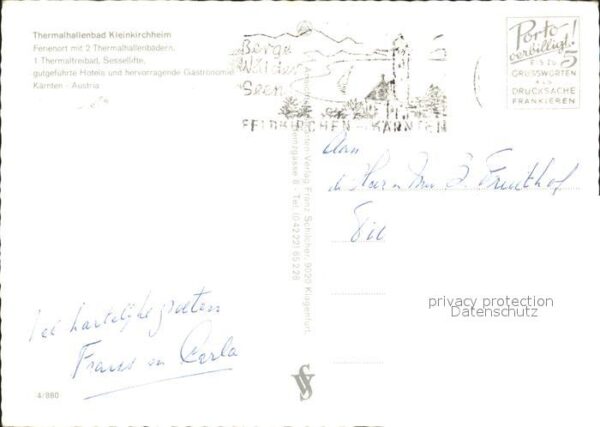 Thermalhallenbad Kleinkirchheim
Ferienort mit 2 Thermalhallenbädern,
1 Thermalfreibad, Sessellifte,
gutgeführte Hotels und hervorragende Gastronomie
Kärnten - Austria
Berge
Wälder
Seen
FELDKIRCHEN - KÄRNTEN
Porto-
verbilligt!
BIS ZU 5
GRUSSWORTEN
ALS
DRUCKSACHE
FRANKIEREN
Verlag Franz Schilcher, 9020 Klagenfurt,
gasse 8 - Tel. (0 42 22) 85 2 28
Aan
de Heer en Mevr
privacy protection
Datenschutz
Vel hartelijke groeten
Frans en Carla
4/880